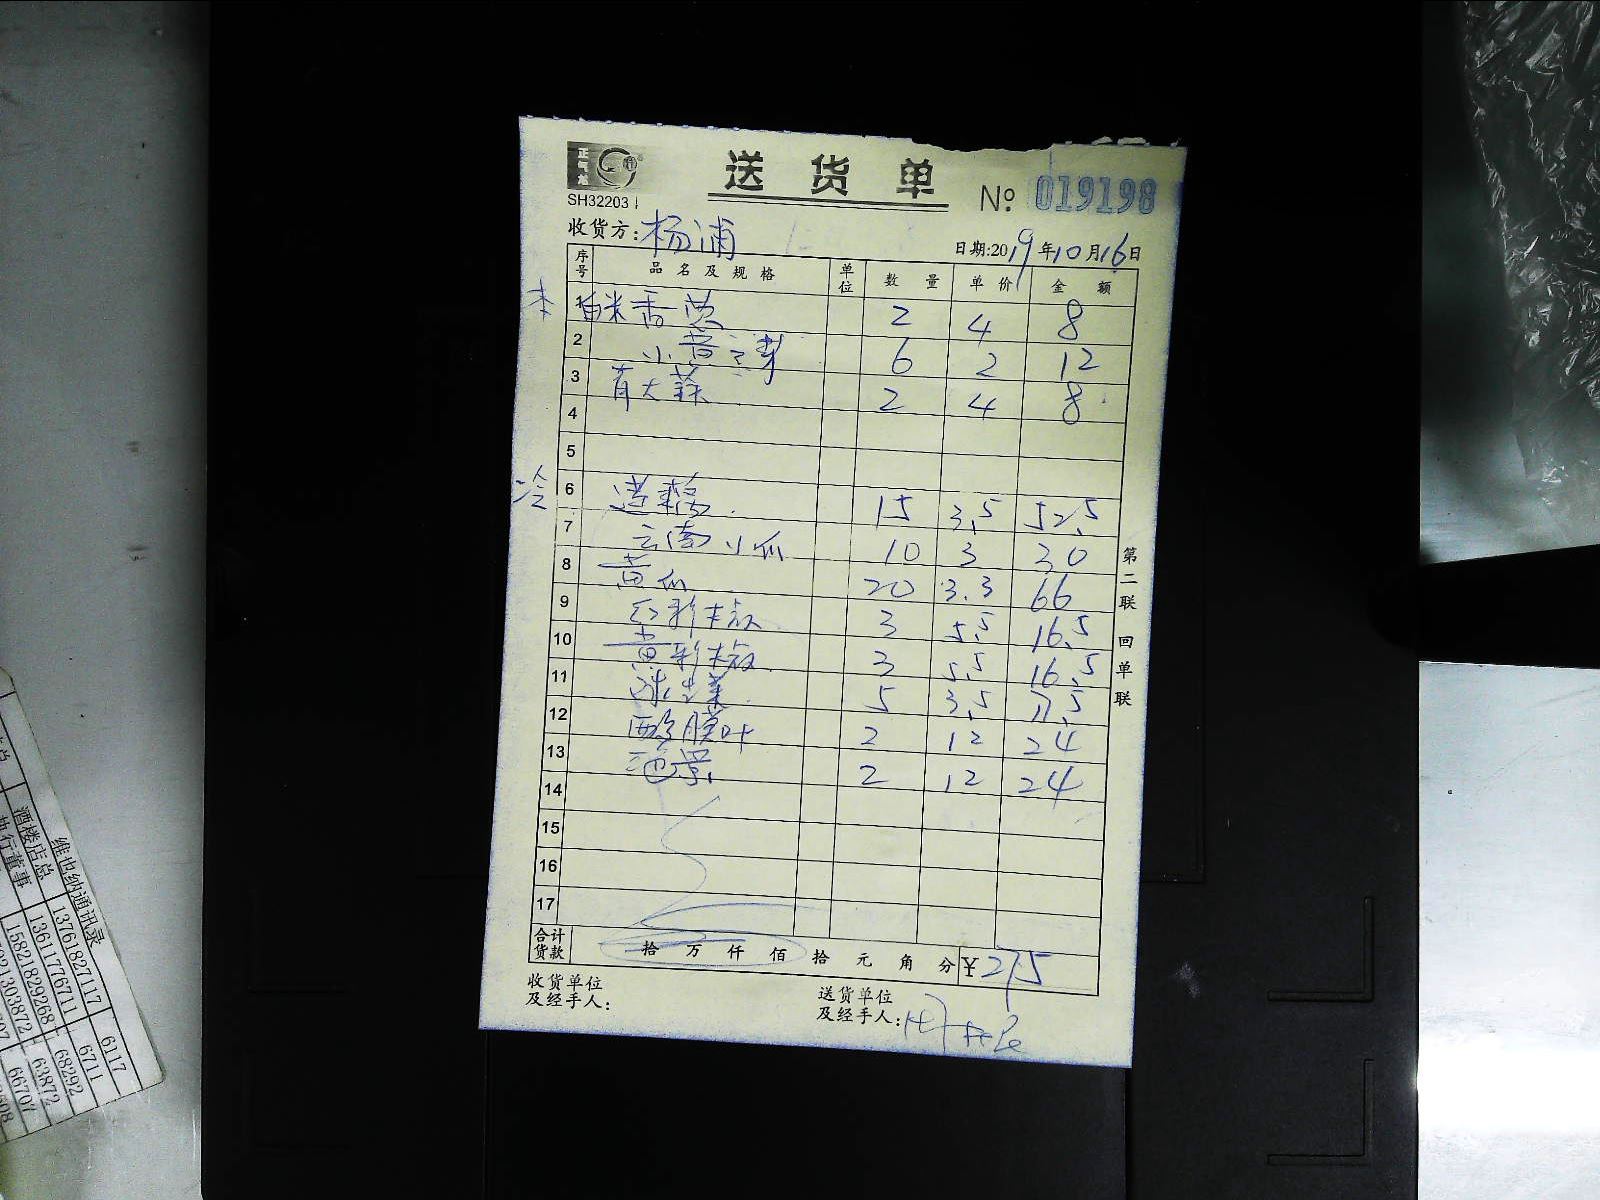 正气龙
送货单
№ 019198
SH32203
收货方: 杨浦
日期:2019年10月16日
序号 品名及规格 单位 数量 单价 金额
本 1 香菜 2 4 8
2 小 6 2 12
3 青大蒜 2 4 8
4
5
冷 6 15 3.5 52.5
7 云南小瓜 10 3 30
8 黄瓜 20 3.3 66
9 红彩椒 3 5.5 16.5
10 黄彩椒 3 5.5 16.5
11 5 3.5 17.5
12 叶 2 12 24
13 2 12 24
14
15
16
17
合计货款 拾 万 仟 佰 拾 元 角 分 ¥275
收货单位
及经手人:
送货单位
及经手人:
第二联 回单联
维也纳通讯录
酒楼店总 13761827117 6117
执行董事 13611776711 6711
15821829268 68292
63872
66707